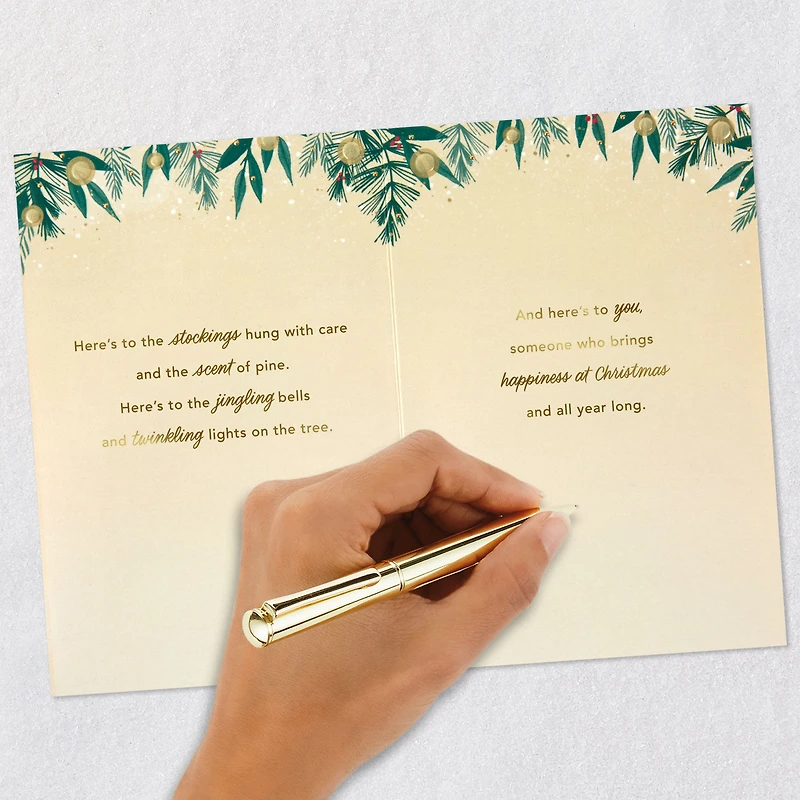 Here's to the stockings hung with care
and the scent of pine.
Here's to the jingling bells
and twinkling lights on the tree.
And here's to you,
someone who brings
happiness at Christmas
and all year long.